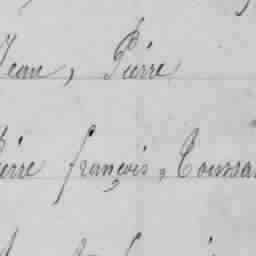 Jean, Pierre
Pierre françois, Toussa